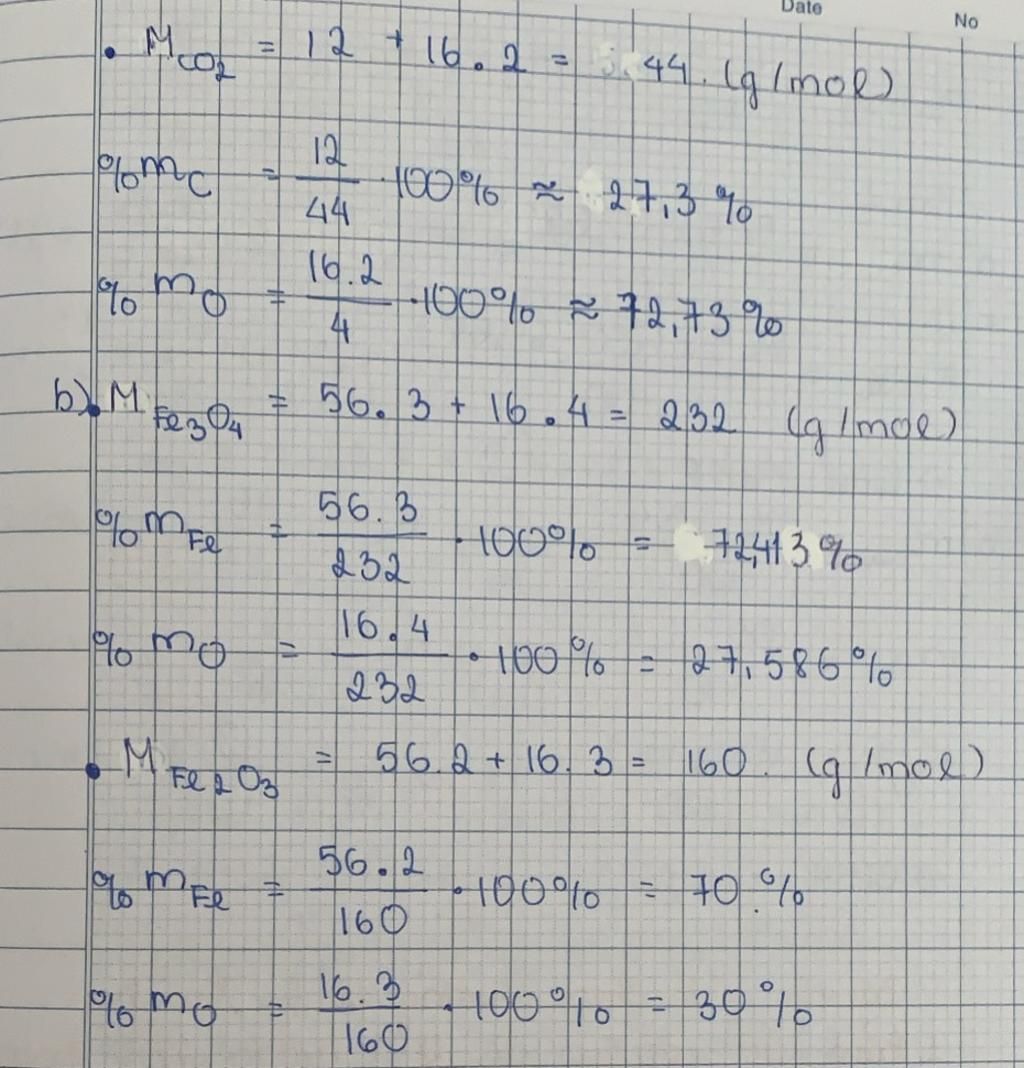 Date
No
• M_CO₂ = 12 + 16.2 = 44. (g/mol)
%m_C = 12/44 .100% ≈ 27,3%
%m_O = 16.2/4 .100% ≈ 72,73%
b) • M_Fe₃O₄ = 56.3 + 16.4 = 232 (g/mol)
%m_Fe = 56.3/232 . 100% = 72,413%
%m_O = 16.4/232 . 100% = 27,586%
• M_Fe₂O₃ = 56.2 + 16.3 = 160. (g/mol)
%m_Fe = 56.2/160 .100% = 70.%
%m_O = 16.3/160 . 100% = 30%